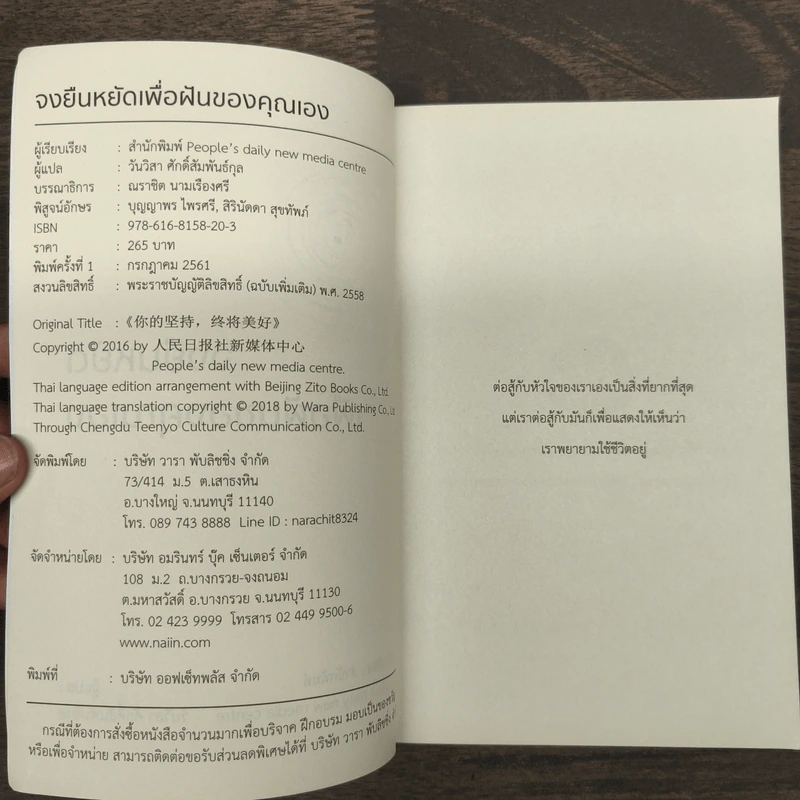 จงยืนหยัดเพื่อฝันของคุณเอง
ผู้เรียบเรียง : สำนักพิมพ์ People's daily new media centre
ผู้แปล : วันวิสา ศักดิ์สัมพันธ์กุล
บรรณาธิการ : ณราชิต นามเรืองศรี
พิสูจน์อักษร : บุญญาพร ไพรศรี, สิรินัดดา สุขทัพภ์
ISBN : 978-616-8158-20-3
ราคา : 265 บาท
พิมพ์ครั้งที่ 1 : กรกฎาคม 2561
สงวนลิขสิทธิ์ : พระราชบัญญัติลิขสิทธิ์ (ฉบับเพิ่มเติม) พ.ศ. 2558
Original Title :《你的坚持，终将美好》
Copyright © 2016 by 人民日报社新媒体中心
People's daily new media centre.
Thai language edition arrangement with Beijing Zito Books Co., Ltd.
Thai language translation copyright © 2018 by Wara Publishing Co., Ltd
Through Chengdu Teenyo Culture Communication Co., Ltd.
จัดพิมพ์โดย : บริษัท วารา พับลิชชิ่ง จำกัด
73/414 ม.5 ต.เสาธงหิน
อ.บางใหญ่ จ.นนทบุรี 11140
โทร. 089 743 8888 Line ID : narachit8324
จัดจำหน่ายโดย : บริษัท อมรินทร์ บุ๊ค เซ็นเตอร์ จำกัด
108 ม.2 ถ.บางกรวย-จงถนอม
ต.มหาสวัสดิ์ อ.บางกรวย จ.นนทบุรี 11130
โทร. 02 423 9999 โทรสาร 02 449 9500-6
www.naiin.com
พิมพ์ที่ : บริษัท ออฟเซ็ทพลัส จำกัด
กรณีที่ต้องการสั่งซื้อหนังสือจำนวนมากเพื่อบริจาค ฝึกอบรม มอบเป็นของ
หรือเพื่อจำหน่าย สามารถติดต่อขอรับส่วนลดพิเศษได้ที่ บริษัท วารา พับลิชชิ่ง
ต่อสู้กับหัวใจของเราเองเป็นสิ่งที่ยากที่สุด
แต่เราต่อสู้กับมันก็เพื่อแสดงให้เห็นว่า
เราพยายามใช้ชีวิตอยู่